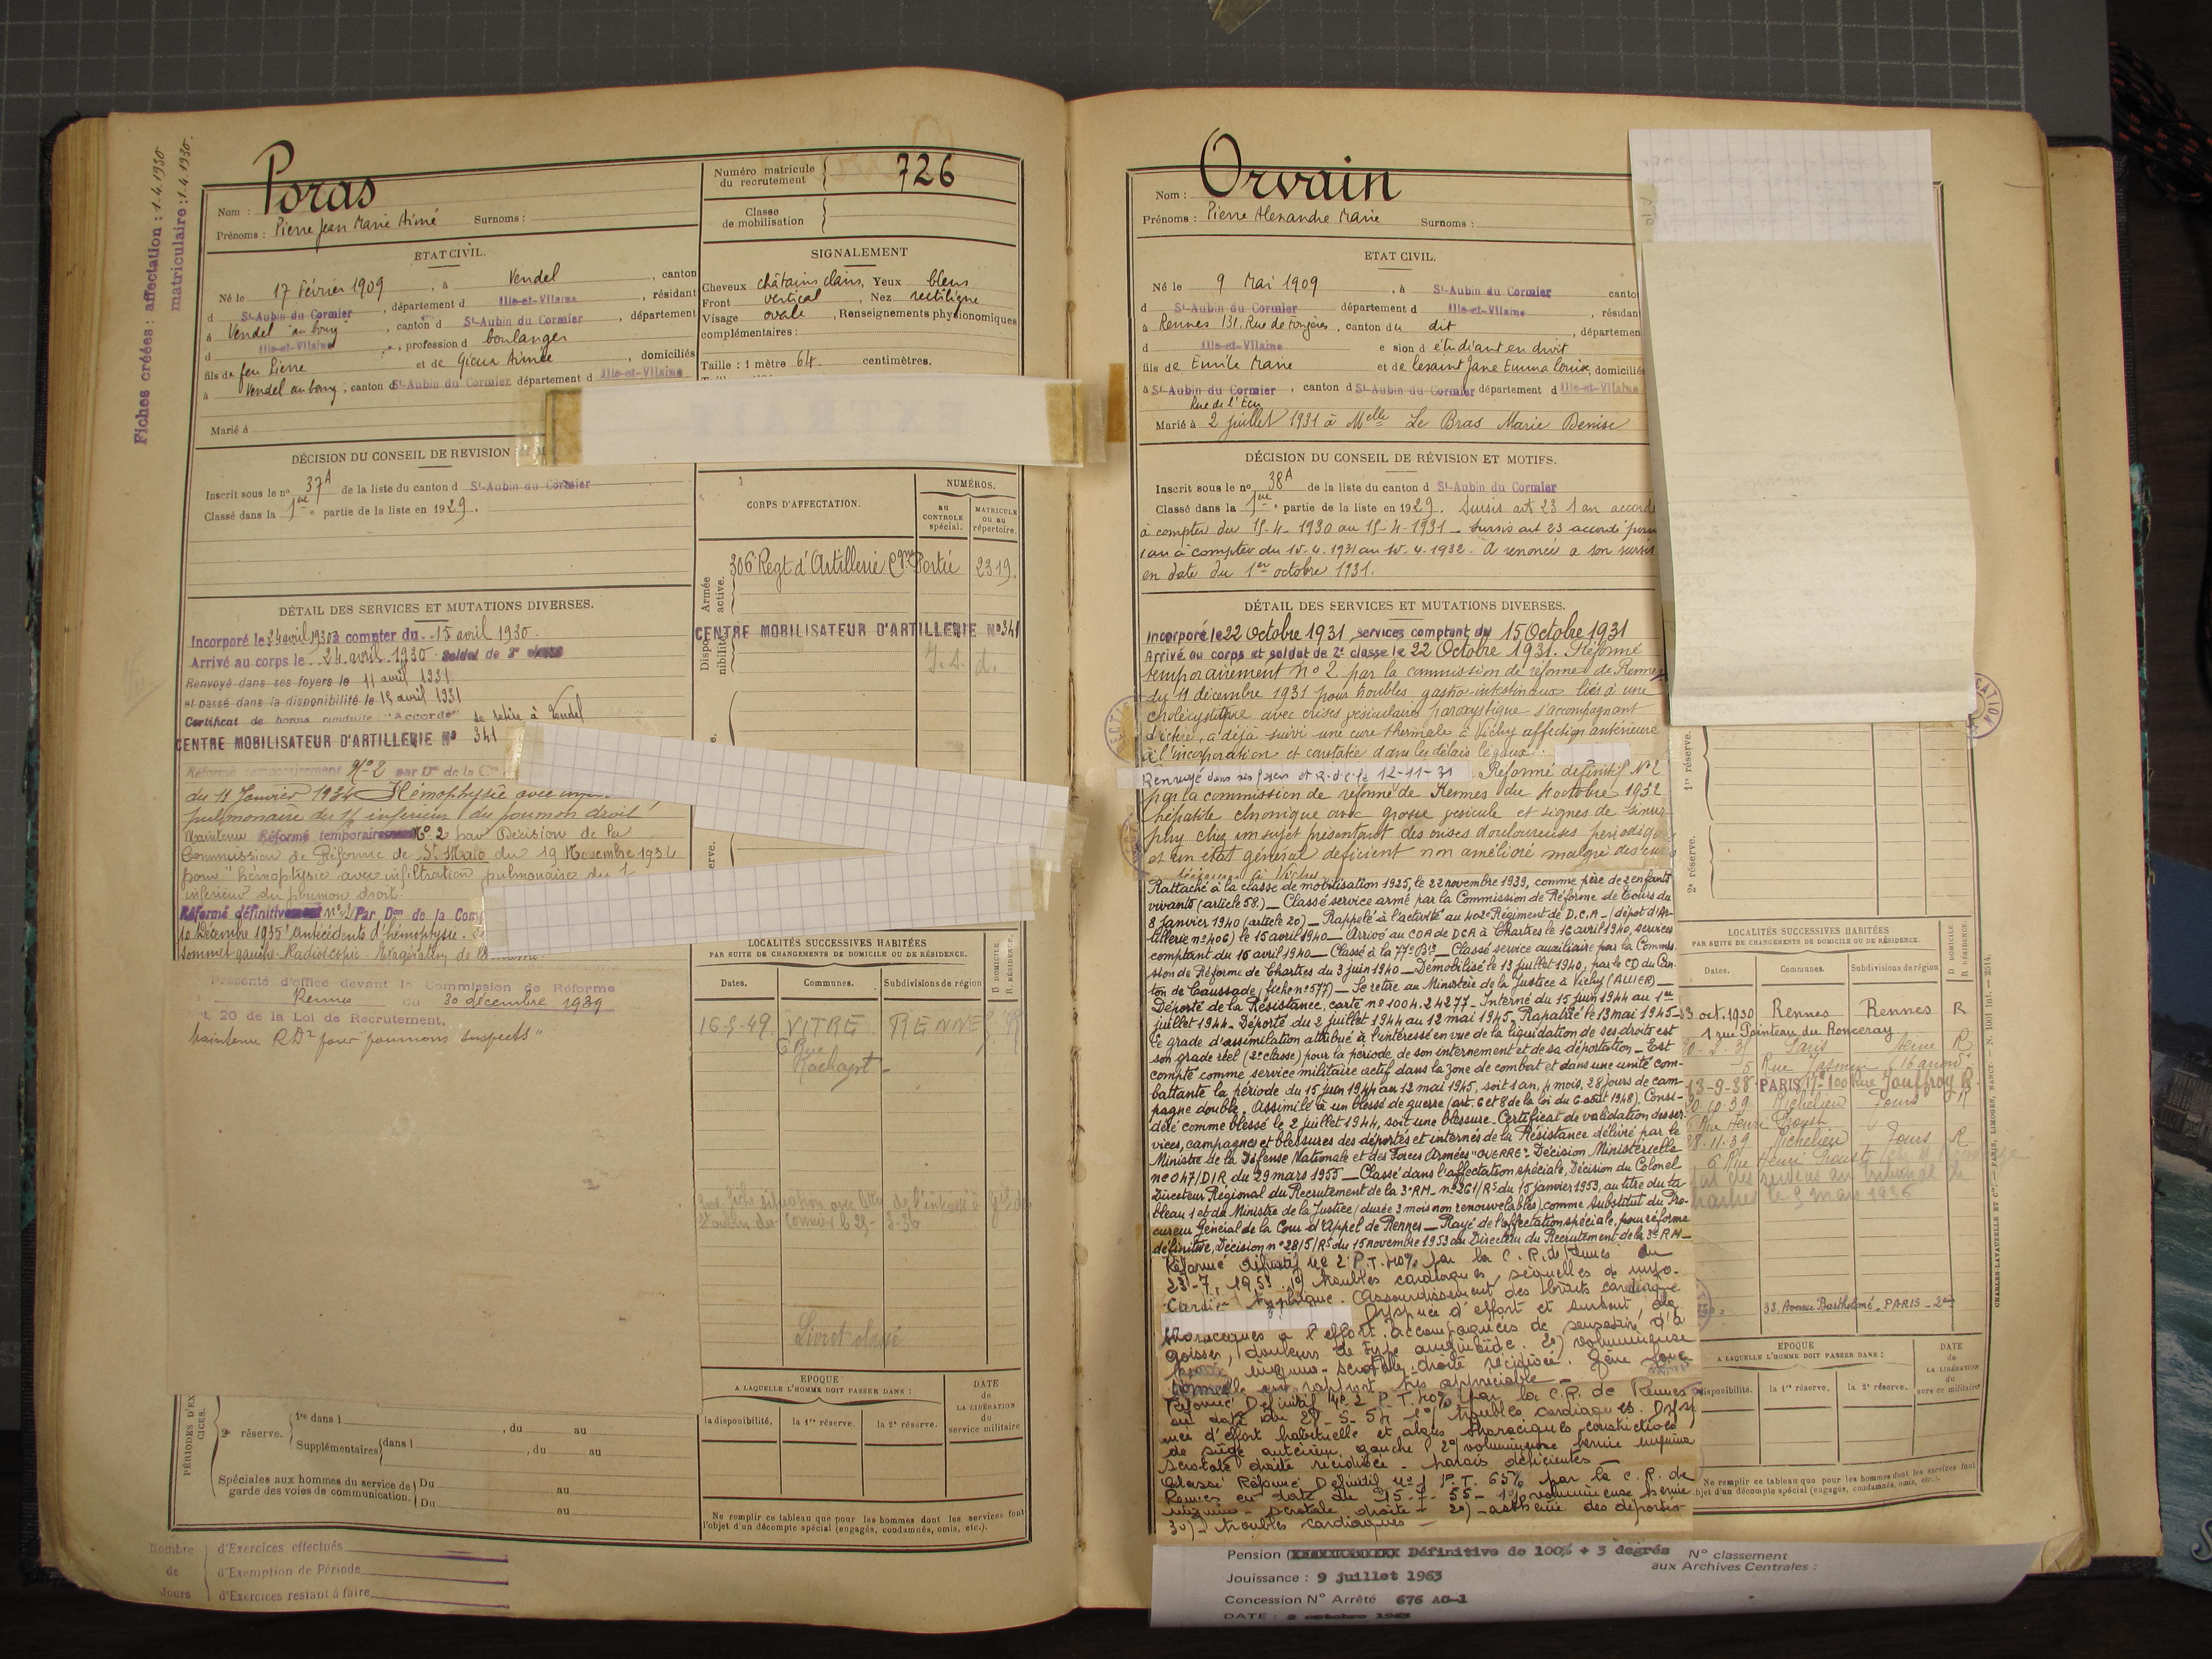 Fiches créées : affectation : 1.4.1930
matriculaire : 1.4.1930.
Nom : Poras
Prénoms : Pierre Jean Marie Aimé Surnoms :
Numéro matricule du recrutement 726
Classe de mobilisation
ETAT CIVIL.
Né le 17 Février 1909, à Vendel, canton
d St-Aubin du Cormier, département d Ille-et-Vilaine, résidant
à Vendel "au bourg", canton d St-Aubin du Cormier, département
d Ille-et-Vilaine, profession d boulanger
fils de feu Pierre et de Gieux Aimée, domiciliés
à Vendel au bourg, canton d St-Aubin du Cormier, département d Ille-et-Vilaine
Marié à
SIGNALEMENT
Cheveux châtains clairs, Yeux bleus
Front vertical, Nez rectiligne
Visage ovale, Renseignements physionomiques
complémentaires :
Taille : 1 mètre 64 centimètres.
DÉCISION DU CONSEIL DE REVISION
Inscrit sous le n° 37A de la liste du canton d St-Aubin du Cormier
Classé dans la 1ère partie de la liste en 1929.
CORPS D'AFFECTATION.
NUMÉROS.
au CONTROLE spécial.
MATRICULE ou au répertoire.
Armée active.
306e Regt d'Artillerie Cgne Portée 2319.
CENTRE MOBILISATEUR D'ARTILLERIE N° 341
Disponibilité
DÉTAIL DES SERVICES ET MUTATIONS DIVERSES.
Incorporé le 24 avril 1930 à compter du 15 avril 1930.
Arrivé au corps le 24 avril 1930 Soldat de 2e classe
Renvoyé dans ses foyers le 11 avril 1931
et passé dans la disponibilité le 15 avril 1931
Certificat de bonne conduite "Accordé" se retire à Vendel
CENTRE MOBILISATEUR D'ARTILLERIE N° 341
Réformé temporairement N° 2 par Don de la Con
du 11 Janvier 1934 Hémophysie avec
pulmonaire du inférieur du poumon droit
Maintenu Réformé temporairement N° 2 par Décision de la
Commission de Réforme de St Malo du 19 Novembre 1934
pour "hémoptysie avec infiltration pulmonaire du
inférieur du poumon droit.
Réformé définitivement n° 2 Par Don de la Com
10 Décembre 1935 "Antécédents d'hémophysie.
sommet gauche. Radioscopie.
Présenté d'office devant la Commission de Réforme
Rennes du 30 décembre 1939
t. 20 de la Loi de Recrutement.
Maintenu RD2 pour "poumons suspects"
LOCALITÉS SUCCESSIVES HABITÉES
PAR SUITE DE CHANGEMENTS DE DOMICILE OU DE RÉSIDENCE.
Dates. Communes. Subdivisions de région D DOMICILE. R RÉSIDENCE.
16-5-49 VITRE RENNES R
6 Rue
Livret classé
PÉRIODES D'EXERCICES.
2e réserve. 1re dans l , du au
Supplémentaires dans l , du au
Spéciales aux hommes du service de garde des voies de communication. Du au
Du au
EPOQUE
A LAQUELLE L'HOMME DOIT PASSER DANS :
la disponibilité. la 1re réserve. la 2e réserve.
DATE de LA LIBÉRATION du service militaire
Ne remplir ce tableau que pour les hommes dont les services font
l'objet d'un décompte spécial (engagés, condamnés, omis, etc.).
Nombre de Jours
d'Exercices effectués
d'Exemption de Période
d'Exercices restant à faire
Nom : Orvain
Prénoms : Pierre Alexandre Marie Surnoms :
ETAT CIVIL.
Né le 9 Mai 1909, à St-Aubin du Cormier canto
d St-Aubin du Cormier département d Ille-et-Vilaine, résidan
à Rennes 131, Rue de Fougères, canton du dit, départemen
d Ille-et-Vilaine e sion d étudiant en droit
fils de Emile Marie et de Lesaint Jane Emma Louise, domicilié
à St-Aubin du Cormier, canton d St-Aubin du Cormier département d Ille-et-Vilaine
Rue de l'Ecu
Marié à 2 juillet 1931 à Melle Le Bras Marie Denise
DÉCISION DU CONSEIL DE RÉVISION ET MOTIFS.
Inscrit sous le n° 38A de la liste du canton d St-Aubin du Cormier
Classé dans la 1ère partie de la liste en 1929. Sursis art 23 1 an accord
à compter du 15-4-1930 au 15-4-1931 - Sursis art 23 accordé pour
1 an à compter du 15.4.1931 au 15.4.1932. A renoncé à son sursis
en date du 1er octobre 1931.
DÉTAIL DES SERVICES ET MUTATIONS DIVERSES.
Incorporé le 22 Octobre 1931 services comptant du 15 Octobre 1931
Arrivé au corps et soldat de 2e classe le 22 Octobre 1931. Réformé
temporairement N° 2 par la commission de réforme de Rennes
du 11 décembre 1931 pour troubles gastro-intestinaux liés à une
cholécystite avec crises vésiculaires paroxystique s'accompagnant
d'ictère, a déjà suivi une cure thermale à Vichy affection antérieure
à l'incorporation et constatée dans les délais légaux.
Renvoyé dans ses foyers 12-11-31 Réformé définitif N° 2
par la commission de réforme de Rennes du 4 octobre 1932
hépatite chronique avec grosse vésicule et signes de
chez un sujet présentant des crises douloureuses périodiq
et un état général déficient non amélioré malgré des
Rattaché à la classe de mobilisation 1925, le 22 novembre 1939, comme père de 2 enfants
vivants (article 58.) _ Classé service armé par la Commission de Réforme de Tours du
8 Janvier 1940 (article 20) _ Rappelé à l'activité au 402e Régiment de D.C.A - (dépôt d'Ar-
tillerie n° 406) le 15 avril 1940 _ Arrivé au COA de DCA à Chartres le 16 avril 1940, services
comptant du 15 avril 1940 _ Classé à la 77e Bie _ Classé service auxiliaire par la Commis-
sion de Réforme de Chartres du 3 juin 1940 _ Démobilisé le 13 juillet 1940, par le CD du Can-
ton de Caussade (fiche n° 577) _ Se retire au Ministère de la Justice à Vichy (ALLIER) _
Déporté de la Résistance, carte n° 1004.24277 _ Interné du 15 juin 1944 au 1er
juillet 1944. Déporté du 2 juillet 1944 au 12 mai 1945. Rapatrié le 13 mai 1945 _
Le grade d'assimilation attribué à l'intéressé en vue de la liquidation de ses droits est
son grade réel (2e classe) pour la période de son internement et de sa déportation _ Est
compté comme service militaire actif dans la zone de combat et dans une unité com-
battante la période du 15 juin 1944 au 12 mai 1945, soit 1 an, 4 mois, 28 jours de cam-
pagne double. Assimilé à un blessé de guerre (art. 6 et 8 de la loi du 6 août 1948). Consi-
déré comme blessé le 2 juillet 1944, soit une blessure. Certificat de validation des ser-
vices, campagnes et blessures des déportés et internés de la Résistance délivré par le
Ministre de la Défense Nationale et des Forces Armées "GUERRE" Décision Ministérielle
n° 047/DIR du 29 mars 1955 _ Classé dans l'affectation spéciale, Décision du Colonel
Directeur Régional du Recrutement de la 3e RM _ n° 261/RS du 15 janvier 1953, au titre du ta
bleau 1 et du Ministre de la Justice (durée 3 mois non renouvelables) comme Substitut du Pro-
cureur Général de la Cour d'Appel de Rennes _ Rayé de l'affectation spéciale, pour réforme
définitive, Décision n° 2815/RS du 15 novembre 1953 du Directeur du Recrutement de la 3e RM _
Réformé définitif n° 2 P.T. 40% par la C.R. de Rennes du
23-7-1953 1°) troubles cardiaques, séquelles de myo-
Cardi typhique. Assourdissement des bruits cardiaque
Dyspnée d'effort et surtout,
thoraciques à l'effort. accompagnées de sensation d'a
goisses, douleurs de type angineïde. 2°) volumineuse
inguino-scrotale droite récidivée. Gêne fonc
tionnelle en rapport très appréciable _
Réformé Définitif n° 2 P.T. 40% par la C.R. de Rennes
en date du 28-5-54 1°) troubles cardiaques. Dysp
née d'effort habituelle et algies thoraciques constrictives
de siège antérieur gauche 2°) volumineuse hernie inguino
scrotale droite récidivée _ parois déficientes _
Classé Réformé Définitif n° 1 P.T. 65% par la C.R. de
Rennes en date du 15-7-55 - 1°) volumineuse hernie
inguino-scrotale droite - 2°) - asthénie des déportés
3°) - troubles cardiaques _
Pension Définitive de 100% + 3 degrés
N° classement aux Archives Centrales :
Jouissance : 9 juillet 1963
Concession N° Arrêté 676 AC-1
DATE : 2 octobre 1963
1re réserve.
2e réserve.
LOCALITÉS SUCCESSIVES HABITÉES
PAR SUITE DE CHANGEMENTS DE DOMICILE OU DE RÉSIDENCE.
Dates. Communes. Subdivisions de région D DOMICILE R RÉSIDENCE.
23 oct. 1930 Rennes Rennes R
1 rue Pointeau du Ronceray
Paris Seine R
5 Rue Jasmin (16 arrond)
13-9-38 PARIS 17e 100 Rue Jouffroy R.
30.10.39 Richelieu Tours R
6 Rue Henri Proust
28.11.39 Richelieu Tours R
6 Rue Henri Proust
32, Avenue Bartholomé - PARIS -
EPOQUE
A LAQUELLE L'HOMME DOIT PASSER DANS :
disponibilité. la 1re réserve. la 2e réserve.
DATE de LA LIBÉRATION du service militaire
Ne remplir ce tableau que pour les hommes dont les services font
objet d'un décompte spécial (engagés, condamnés, omis, etc.).
CHARLES-LAVAUZELLE ET Cie. — PARIS, LIMOGES, NANCY — N. 1001 Int. — 2514.